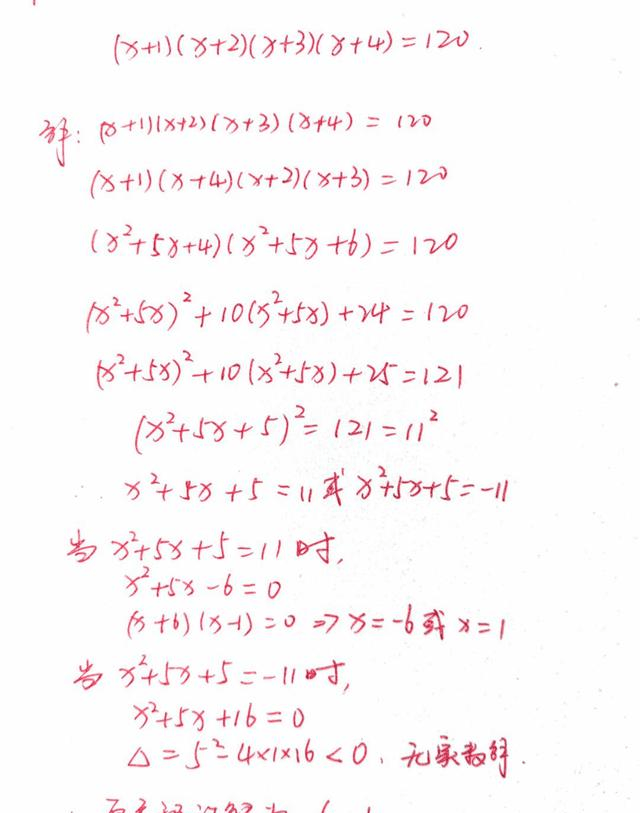 (x+1)(x+2)(x+3)(x+4)=120.
解: (x+1)(x+2)(x+3)(x+4)=120
(x+1)(x+4)(x+2)(x+3)=120
(x²+5x+4)(x²+5x+6)=120
(x²+5x)²+10(x²+5x)+24=120
(x²+5x)²+10(x²+5x)+25=121
(x²+5x+5)²=121=11²
∴ x²+5x+5=11或x²+5x+5=-11
当x²+5x+5=11时,
x²+5x-6=0
(x+6)(x-1)=0 => x=-6或x=1
当x²+5x+5=-11时,
x²+5x+16=0
Δ=5²-4×1×16<0, 无实数解.